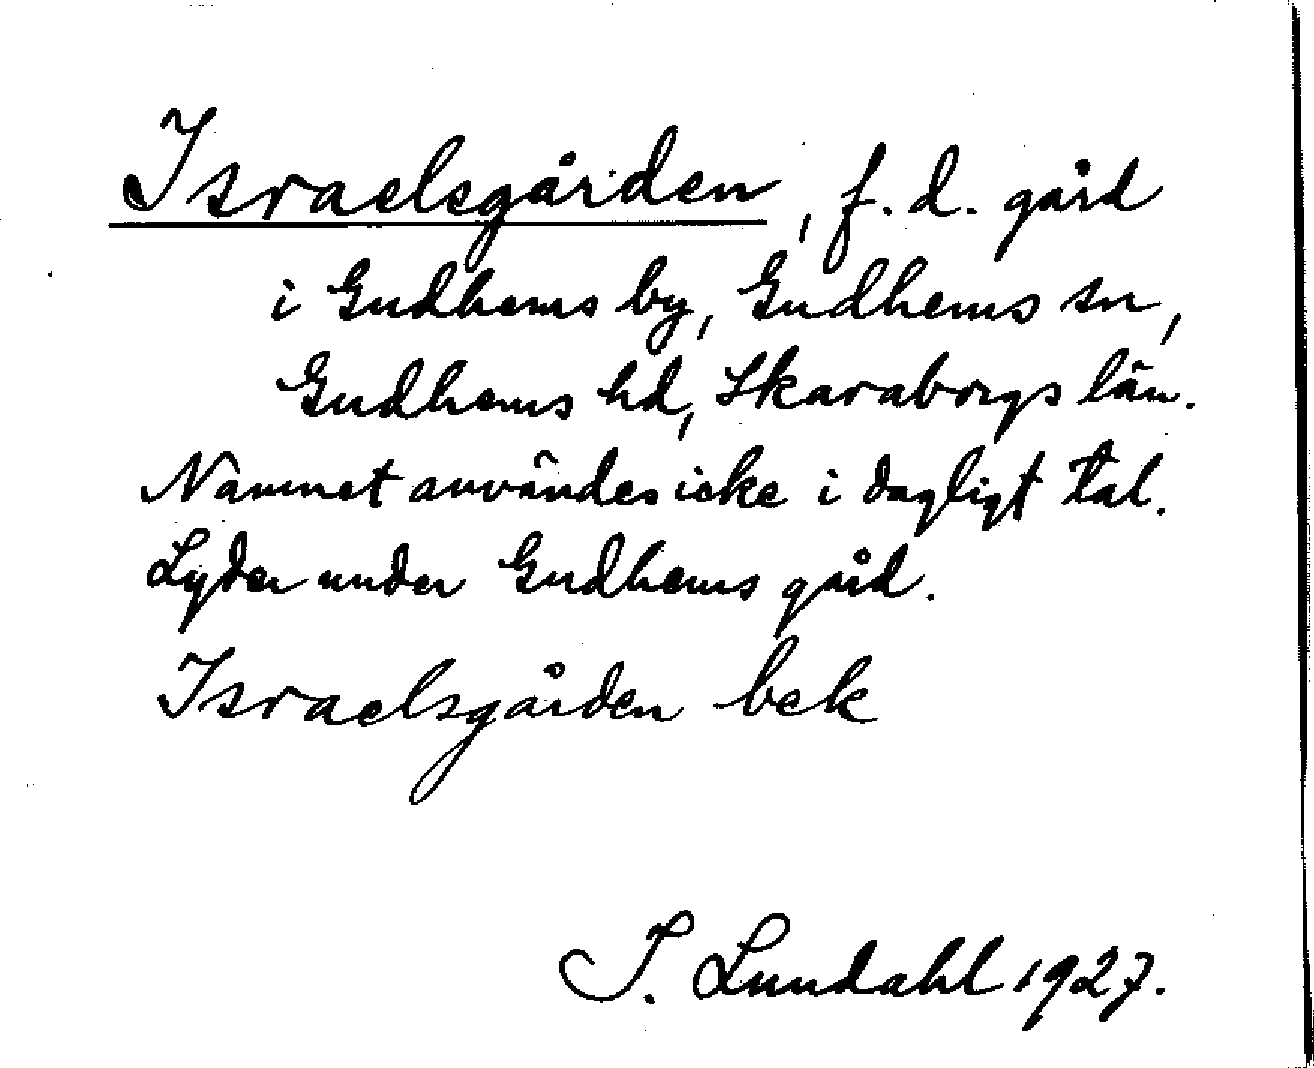 Israelsgården, f.d. gård
i Gudhems by, Gudhems sn,
Gudhems hd, Skaraborgs län.
Namnet användes icke i dagligt tal.
Lyder under Gudhems gård.
Israelsgården bek
I. Lundahl 1927.